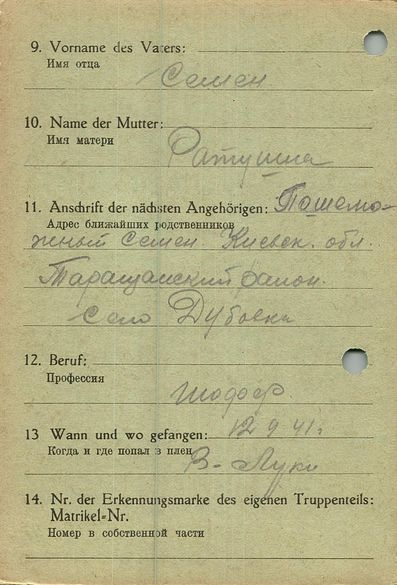 9. Vorname des Vaters:
Имя отца
Семен
10. Name der Mutter:
Имя матери
Ратушна
11. Anschrift der nächsten Angehörigen: Пошемо-
Адрес ближайших родственников
жный Семен. Киевск. обл.
Таращанский район.
Село Дубовка
12. Beruf:
Профессия
шофер.
13 Wann und wo gefangen: 12 9 41г
Когда и где попал в плен
В-Луки
14. Nr. der Erkennungsmarke des eigenen Truppenteils:
Matrikel-Nr.
Номер в собственной части